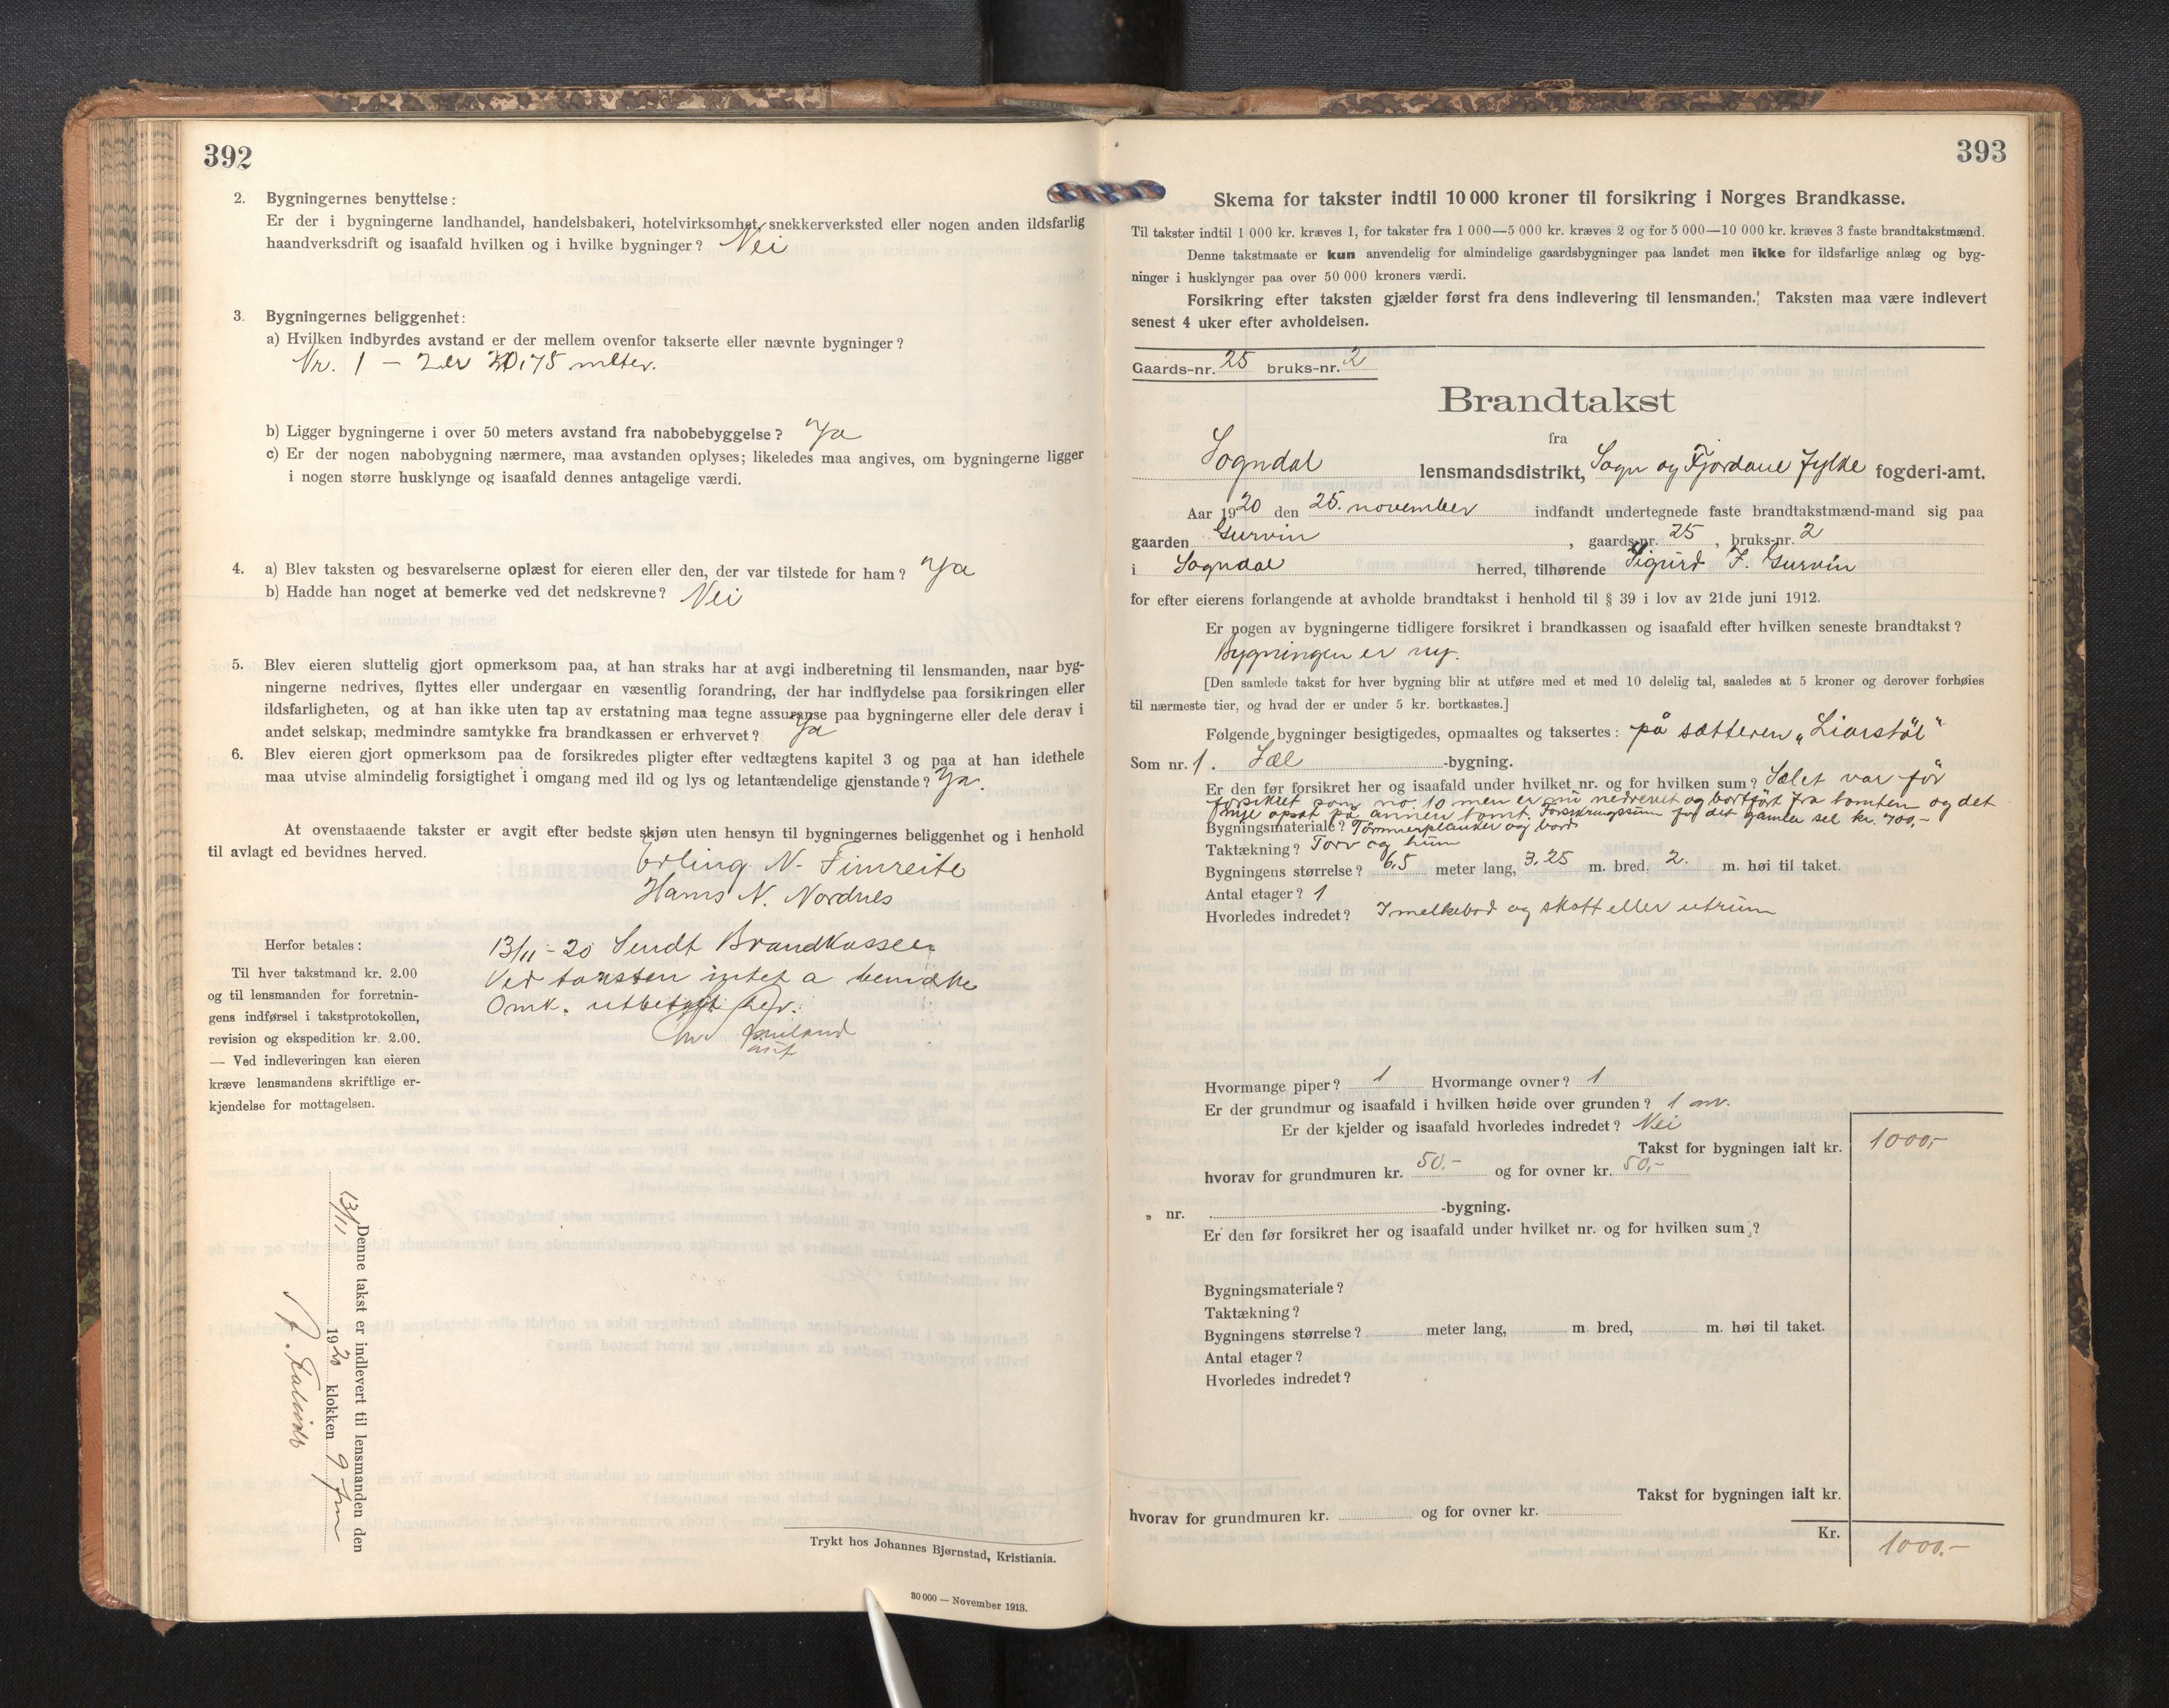 392
2. Bygningernes benyttelse:
Er der i bygningerne landhandel, handelsbakeri, hotelvirksomhet, snekkerverksted eller nogen anden ildsfarlig
haandverksdrift og isaafald hvilken og i hvilke bygninger? Nei
3. Bygningernes beliggenhet:
a) Hvilken indbyrdes avstand er der mellem ovenfor takserte eller nævnte bygninger?
Nr. 1 – 2 er 20,75 meter.
b) Ligger bygningerne i over 50 meters avstand fra nabobebyggelse? Ja
c) Er der nogen nabobygning nærmere, maa avstanden oplyses; likeledes maa angives, om bygningerne ligger
i nogen større husklynge og isaafald dennes antagelige værdi.
4. a) Blev taksten og besvarelserne oplæst for eieren eller den, der var tilstede for ham? Ja
b) Hadde han noget at bemerke ved det nedskrevne? Nei
5. Blev eieren sluttelig gjort opmerksom paa, at han straks har at avgi indberetning til lensmanden, naar byg-
ningerne nedrives, flyttes eller undergaar en væsentlig forandring, der har indflydelse paa forsikringen eller
ildsfarligheten, og at han ikke uten tap av erstatning maa tegne assuranse paa bygningerne eller dele derav i
andet selskap, medmindre samtykke fra brandkassen er erhvervet? Ja
6. Blev eieren gjort opmerksom paa de forsikredes pligter efter vedtægtens kapitel 3 og paa at han idethele
maa utvise almindelig forsigtighet i omgang med ild og lys og letantændelige gjenstande? Ja.
At ovenstaaende takster er avgit efter bedste skjøn uten hensyn til bygningernes beliggenhet og i henhold
til avlagt ed bevidnes herved.
Erling N. Fimreite
Hans N. Nordnes
Herfor betales:
Til hver takstmand kr. 2.00
og til lensmanden for forretnin-
gens indførsel i takstprotokollen,
revision og ekspedition kr. 2.00.
— Ved indleveringen kan eieren
kræve lensmandens skriftlige er-
kjendelse for mottagelsen.
13/11-20 Sendt Brandkassen
Ved taksten intet a bemerke
Omk. utbetalt her.
Denne takst er indlevert til lensmanden den
13/11 1920 klokken 9 fm
Trykt hos Johannes Bjørnstad, Kristiania.
30 000 — November 1913.
393
Skema for takster indtil 10 000 kroner til forsikring i Norges Brandkasse.
Til takster indtil 1 000 kr. kræves 1, for takster fra 1 000—5 000 kr. kræves 2 og for 5 000—10 000 kr. kræves 3 faste brandtakstmænd.
Denne takstmaate er kun anvendelig for almindelige gaardsbygninger paa landet men ikke for ildsfarlige anlæg og byg-
ninger i husklynger paa over 50 000 kroners værdi.
Forsikring efter taksten gjælder først fra dens indlevering til lensmanden. Taksten maa være indlevert
senest 4 uker efter avholdelsen.
Gaards-nr. 25 bruks-nr. 2
Brandtakst
fra
Sogndal lensmandsdistrikt, Sogn og Fjordane fylke fogderi-amt.
Aar 1920 den 25. november indfandt undertegnede faste brandtakstmænd-mand sig paa
gaarden Gurvin, gaards-nr. 25, bruks-nr. 2
i Sogndal herred, tilhørende Sigurd J. Gurvin
for efter eierens forlangende at avholde brandtakst i henhold til § 39 i lov av 21de juni 1912.
Er nogen av bygningerne tidligere forsikret i brandkassen og isaafald efter hvilken seneste brandtakst?
Bygningen er ny.
[Den samlede takst for hver bygning blir at utføre med et med 10 delelig tal, saaledes at 5 kroner og derover forhøies
til nærmeste tier, og hvad der er under 5 kr. bortkastes.]
Følgende bygninger besigtigedes, opmaaltes og taksertes: på sætteren „Liarstøl"
Som nr. 1. Sæl -bygning.
Er den før forsikret her og isaafald under hvilket nr. og for hvilken sum? Sælet var før
forsikret som no. 10 men er nu nedrevet og bortført fra tomten og det
nye opsat på annen tomt. Forsikringssum for det gamle sel kr. 700,-
Bygningsmateriale? Tømmerplanker og bord
Taktækning? Torv og
Bygningens størrelse? 6,5 meter lang, 3,25 m. bred, 2. m. høi til taket.
Antal etager? 1
Hvorledes indredet? I melkebod og skott eller utrum
Hvormange piper? 1 Hvormange ovner? 1
Er der grundmur og isaafald i hvilken høide over grunden? 1 m.
Er der kjelder og isaafald hvorledes indredet? Nei
Takst for bygningen ialt kr. 1000,-
hvorav for grundmuren kr. 50.- og for ovner kr. 50,-
„ nr. -bygning.
Er den før forsikret her og isaafald under hvilket nr. og for hvilken sum?
Bygningsmateriale?
Taktækning?
Bygningens størrelse? meter lang, m. bred, m. høi til taket.
Antal etager?
Hvorledes indredet?
Takst for bygningen ialt kr.
hvorav for grundmuren kr. og for ovner kr.
Kr. 1000.-